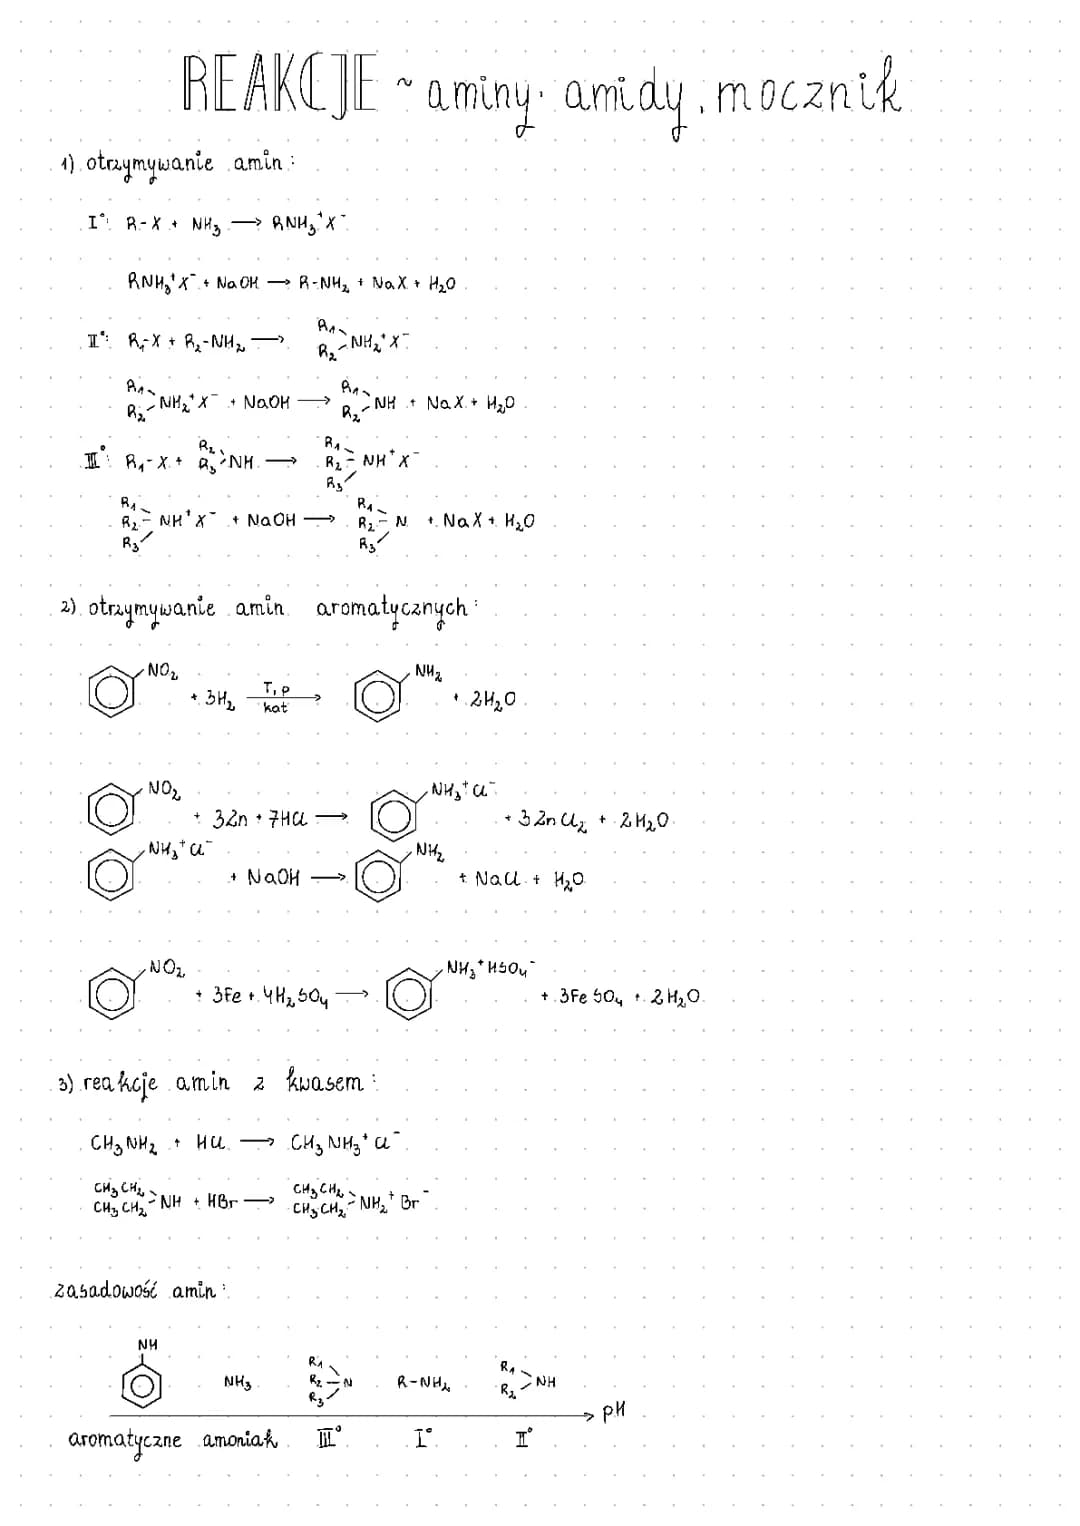 REAKCJE ~ aminy. amidy, mocznik
1) otrzymywanie amin:
I°: R-X + NH₃ → RNH₃⁺X⁻
RNH₃⁺X⁻ + NaOH → R-NH₂ + NaX + H₂O
II°: R₁-X + R₂-NH₂ → R₁ R₂ NH₂⁺X⁻
R₁ R₂ NH₂⁺X⁻ + NaOH → R₁ R₂ NH + NaX + H₂O
III°: R₁-X + R₂ R₃ NH → R₁ R₂ R₃ NH⁺X⁻
R₁ R₂ R₃ NH⁺X⁻ + NaOH → R₁ R₂ R₃ N + NaX + H₂O
2) otrzymywanie amin aromatycznych:
NO₂ + 3H₂ T,p kat → NH₂ + 2H₂O
NO₂ + 3Zn + 7HCl → NH₃⁺Cl⁻ + 3ZnCl₂ + 2H₂O
NH₃⁺Cl⁻ + NaOH → NH₂ + NaCl + H₂O
NO₂ + 3Fe + 4H₂SO₄ → NH₃⁺HSO₄⁻ + 3FeSO₄ + 2H₂O
3) reakcje amin z kwasem:
CH₃NH₂ + HCl → CH₃NH₃⁺Cl⁻
CH₃CH₂ CH₃CH₂ NH + HBr → CH₃CH₂ CH₃CH₂ NH₂⁺Br⁻
zasadowość amin:
NH NH₃ R₁ R₂ R₃ N R-NH₂ R₁ R₂ NH
→ pH
aromatyczne amoniak III° I° II°